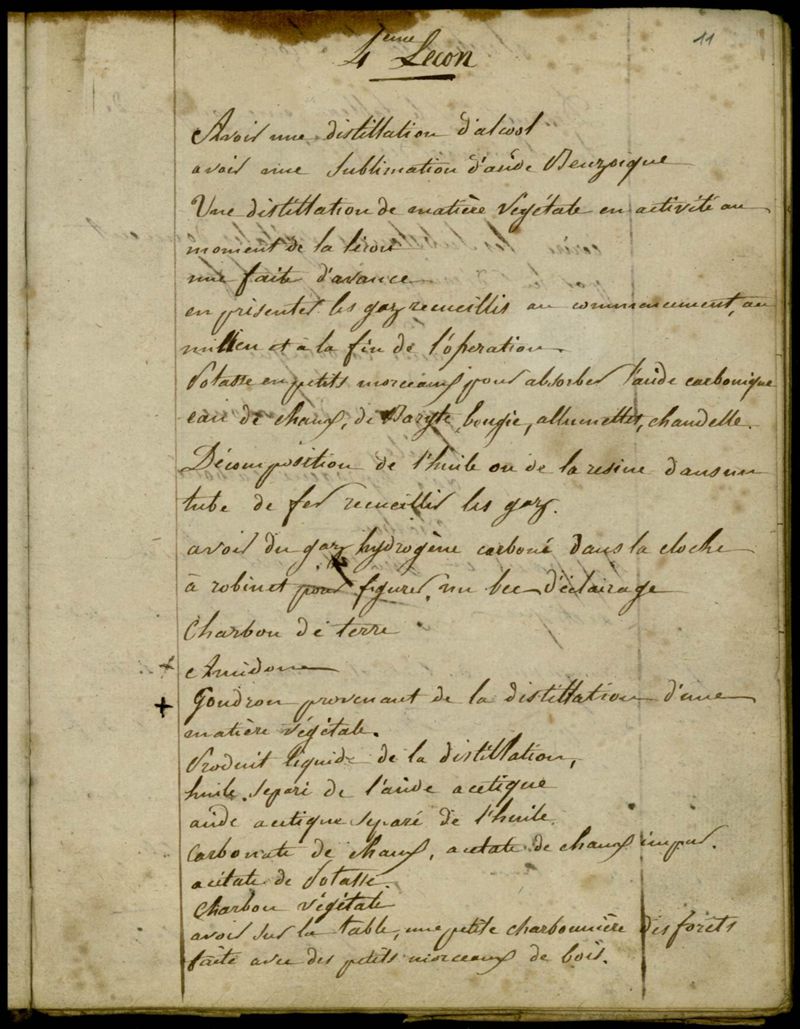 11
4eme Lecon
Avoir une distillation d'alcool
avoir une sublimation d'acide Benzoique
Une distillation de matière végétale en activité au
moment de la lecon
une faite d'avance
en présenter les gaz recueillis au commencement, au
milieu et à la fin de l'opération
Potasse en petits morceaux pour absorber l'acide carbonique
eau de chaux, de Baryte, bougie, allumettes, chandelle.
Décomposition de l'huile ou de la resine dans un
tube de fer recueillir les gaz.
avoir du gaz hydrogène carboné dans la cloche
à robinet pour figurer un bec d'éclairage
Charbon de terre
+ Amidon
+ Goudron provenant de la distillation d'une
matière végétale.
Produit liquide de la distillation,
huile separé de l'acide acetique
acide acetique separé de l'huile
Carbonate de chaux, acetate de chaux impur.
acétate de Potasse
Charbon végétale
avoir sur la table, une petite charbonnière des forets
faite avec des petits morceaux de bois.